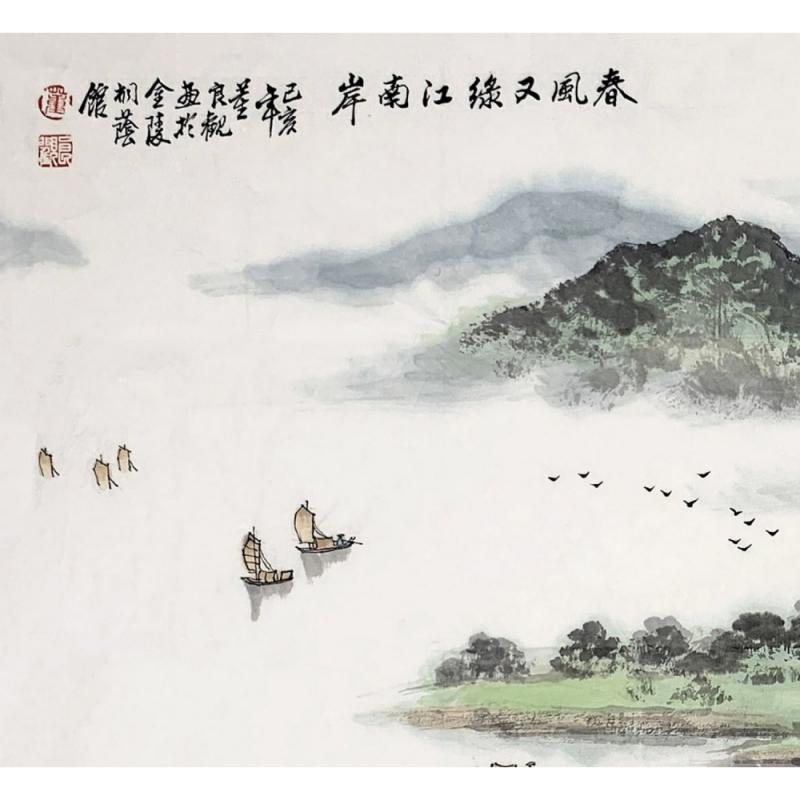 春風又綠江南岸
己亥年董良觀畫於金陵桐蔭館
董
良觀